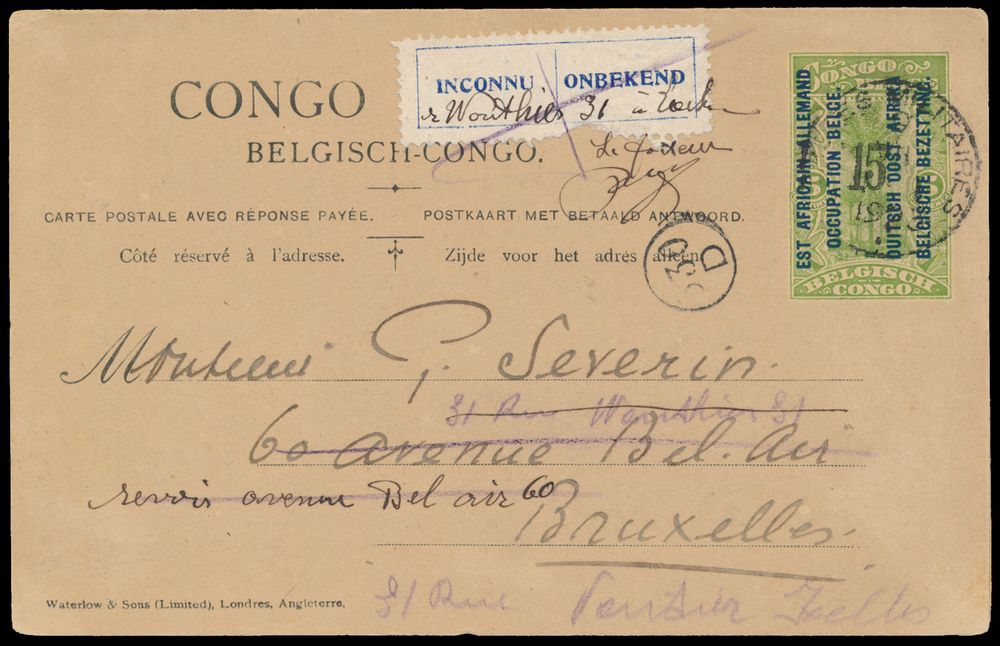 INCONNU ONBEKEND
r Wouthier 31 à
Le facteur
CONGO
BELGISCH-CONGO.
CARTE POSTALE AVEC RÉPONSE PAYÉE. POSTKAART MET BETAALD ANTWOORD.
Côté réservé à l'adresse. Zijde voor het adres alleen.
CONGO
EST AFRICAIN ALLEMAND
OCCUPATION BELGE.
DUITSCH OOST AFRIKA
BELGISCHE BEZETTING.
15
BELGISCH
CONGO
330
D
Monsieur G. Severin.
31 Rue Wauthier 31
60 avenue Bel. Air
avenue Bel air 60
Bruxelles.
31 Rue Ixelles
Waterlow & Sons (Limited), Londres, Angleterre.